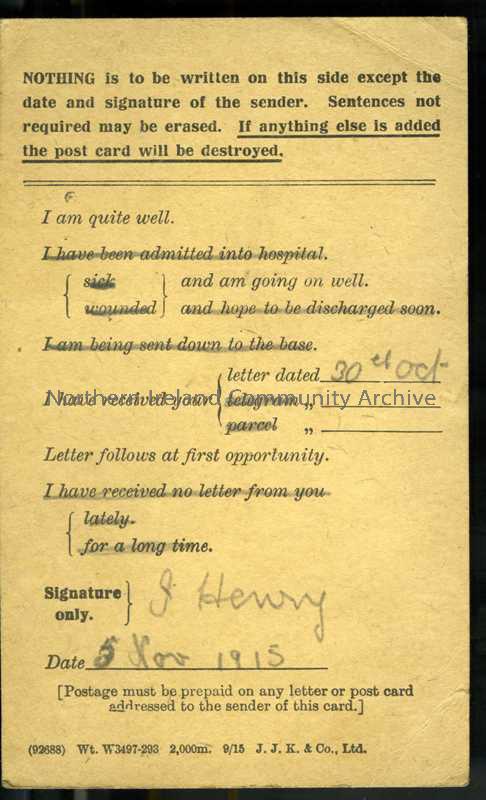 NOTHING is to be written on this side except the
date and signature of the sender. Sentences not
required may be erased. If anything else is added
the post card will be destroyed.
I am quite well.
I have been admitted into hospital.
sick and am going on well.
wounded and hope to be discharged soon.
I am being sent down to the base.
letter dated 30th Oct
Northern Ireland Community Archive
I have received your telegram „
parcel „
Letter follows at first opportunity.
I have received no letter from you
lately.
for a long time.
Signature
only.
J Henry
Date 5 Nov 1915
[Postage must be prepaid on any letter or post card
addressed to the sender of this card.]
(92688) Wt. W3497-293 2,000m. 9/15 J. J. K. & Co., Ltd.